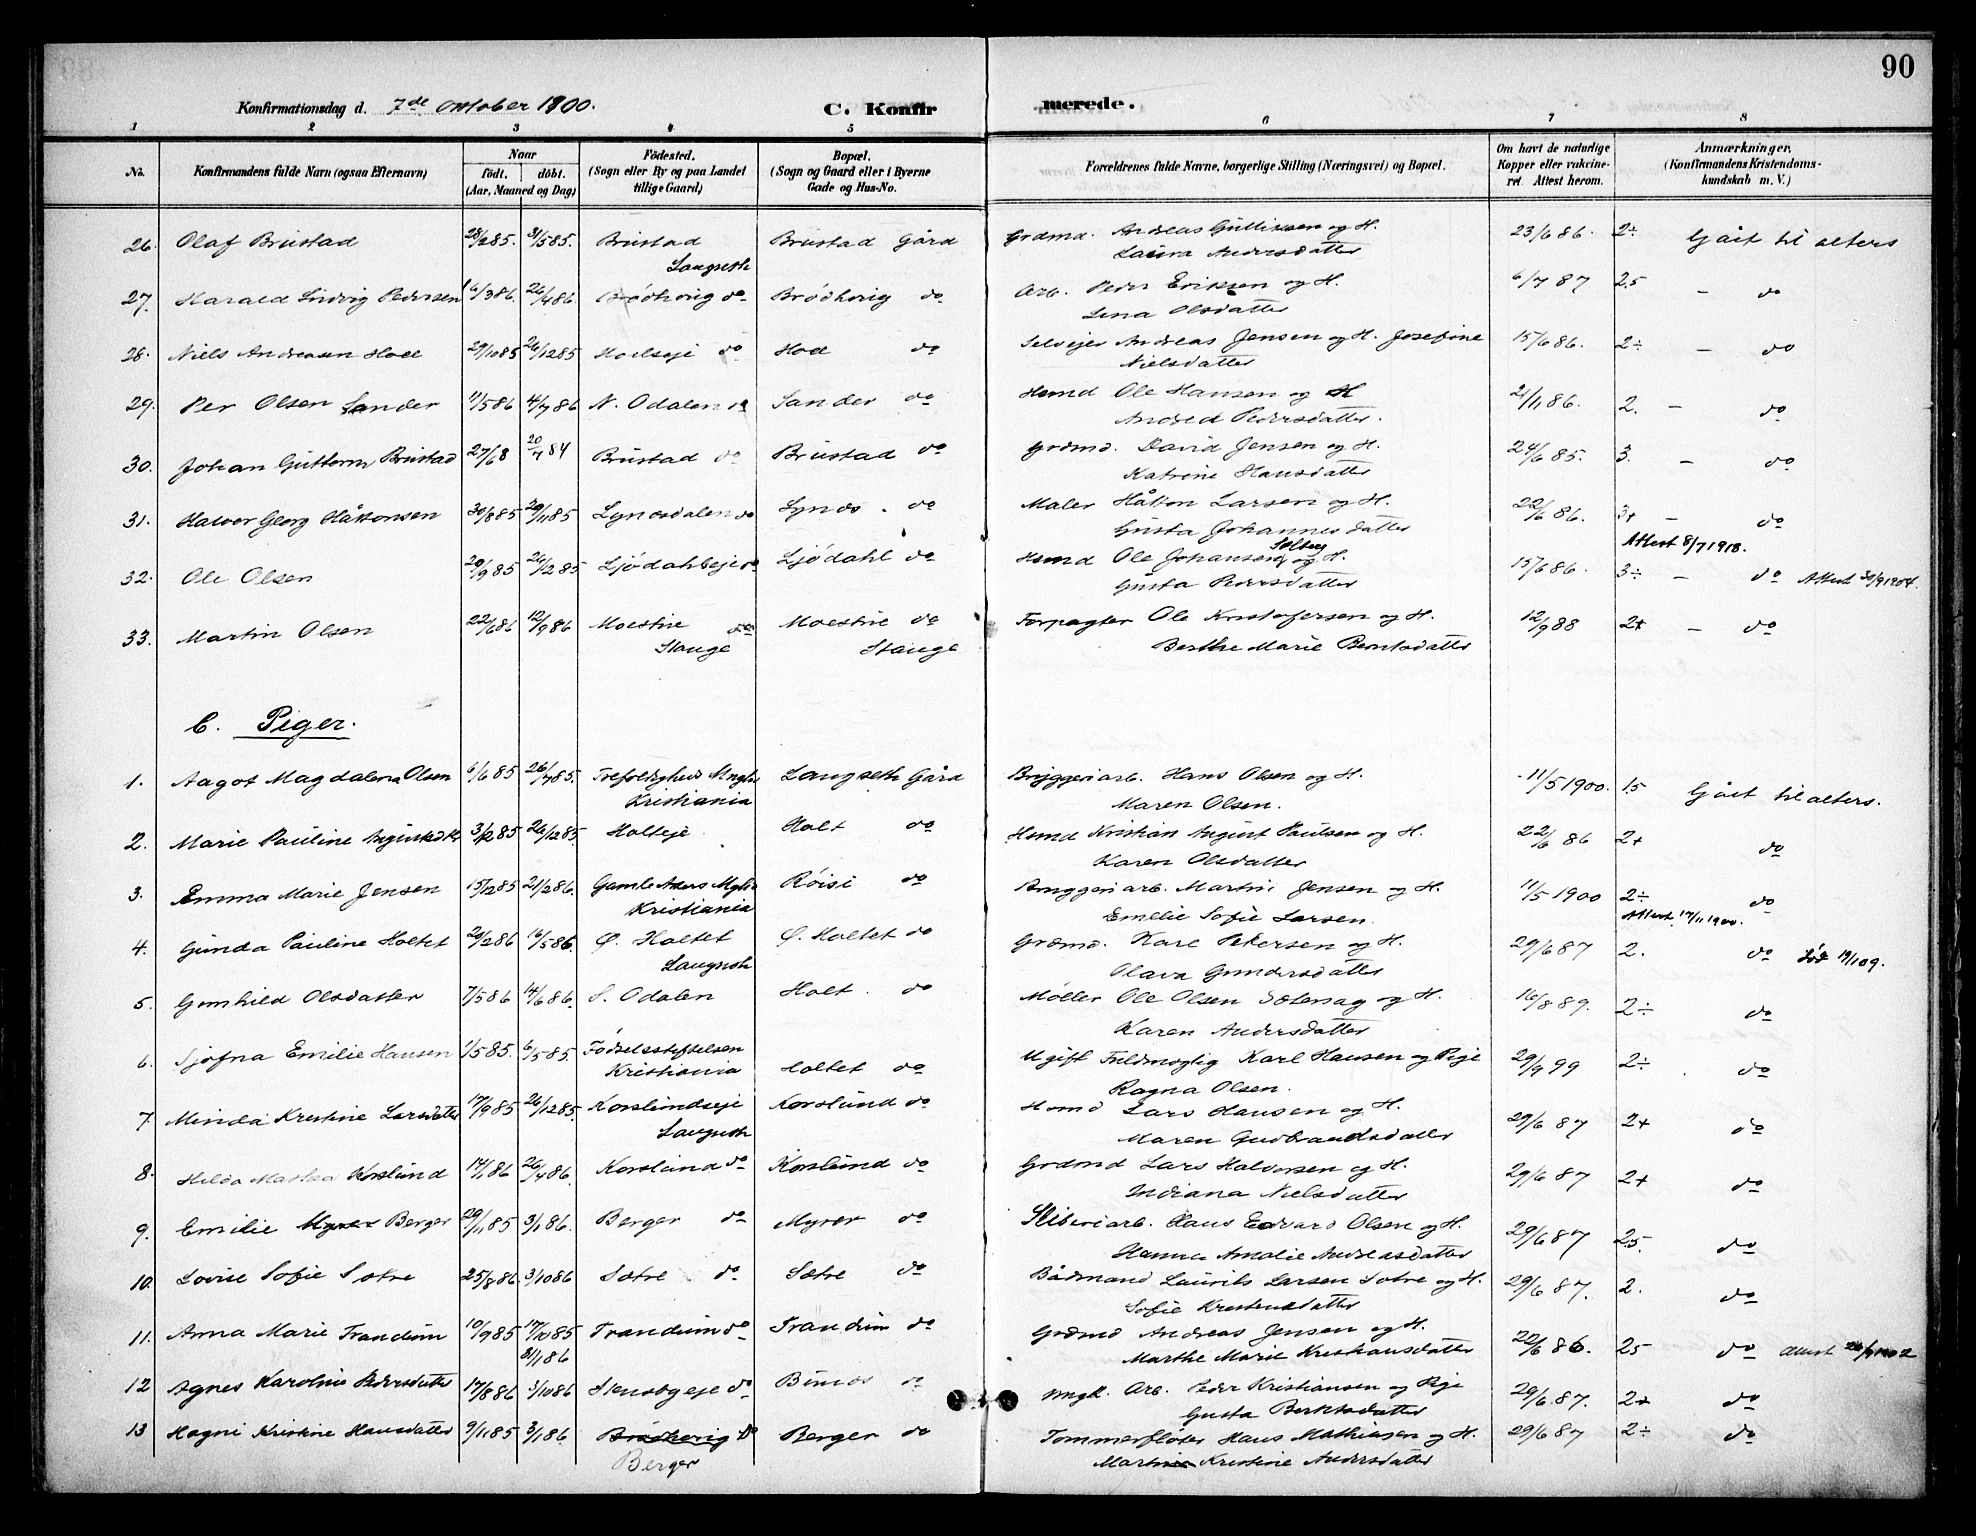 90
Konfirmationsdag d. 7de Oktober 1900. C. Konfirmerede.
1 2 3 4 5 6 7 8
No. Konfirmandens fulde Navn (ogsaa Efternavn) Naar født. døbt. (Aar, Maaned og Dag) Fødested. (Sogn eller By og paa Landet tillige Gaard) Bopæl. (Sogn og Gaard eller i Byerne Gade og Hus-No. Forældrenes fulde Navne, borgerlige Stilling (Næringsvei) og Bopæl. Om havt de naturlige Kopper eller vakcineret. Attest herom. Anmærkninger, (Konfirmandens Kristendomskundskab m. V.)
26. Olaf Brustad 28/2 85. 31/5 85. Brustad Langseth Brustad Gård Grdmd. Andreas Gulliksen og H. Laura Andersdatter 23/6 86. 2÷ Gået til alters
27. Harald Ludvig Pedersen 16/3 86. 26/4 86. Brødhovig do Brødhovig do Arb. Peder Eriksen og H. Lena Olsdatter 6/7 87 2.5 – do
28. Niels Andreasen Hoel 29/10 85 26/12 85 Hoelseje do Hoel do Selvejer Andreas Jensen og H. Josefine Nielsdatter 15/6 86. 2÷ – do
29. Per Olsen Sander 11/5 86 4/7 86 N. Odalen Sander do Hsmd Ole Hansen og H Pedersdatter. 21/11 86. 2. – do
30. Johan Guttorm Brustad 27/6 8 20/7 84 Brustad do Brustad do Grdmd. David Jensen og H. Katrine Hansdatter 24/6 85. 3. – do
31. Halvor Georg Håkonsen 30/8 85 29/11 85 Lynæsdalen do Lynæs. do Maler Håkon Larsen og H. Gusta Johannesdatter 22/6 86. 3+ – do
Attest 8/7 1918.
32. Ole Olsen 20/9 85 26/12 85 Ljødahlseje do Ljødahl do Hsmd Ole Johansen Solberg og H. Gusta Pedersdatter 15/6 86. 3÷ – do Attest 30/9 1904.
33. Martin Olsen 22/6 86 12/9 86 Moestue do Stange Moestue do Stange Forpagter Ole Kristofersen og H. Berthe Marie Berntsdatter 12/9 88 2+ – do
C. Piger.
1. Aagot Magdalena Olsen 6/6 85 26/7 85. Trefoldigheds Mgh Kristiania Langseth Gård Bryggeriarb. Hans Olsen og H. Maren Olsen. 11/5 1900. 1.5 Gået til alters.
2. Marie Pauline Augustsdtr 3/12 85 26/12 85. Holteje. Holt do Hsmd Kristian August Paulsen og H. Karen Olsdatter 22/6 86 2+ do
3. Emma Marie Jensen 15/12 85 21/2 86. Gamle Akers Mgh Kristiania Røisi do Bryggeriarb. Martin Jensen og H. Emelie Sofie Larsen. 11/5 1900 2÷ do
Attest 17/11 1900.
4. Gunda Pauline Holtet 20/2 86 16/5 86 Ø. Holtet Langseth Ø. Holtet do Grdmd. Karl Petersen og H. Olava Gundersdatter 29/6 87 2. do Død 19/1 09.
5. Gunhild Olsdatter 7/5 86 14/6 86. S. Odalen Holt. do Møller Ole Olsen Sætersag og H. Karen Andersdatter 16/8 89. 2÷ do
6. Sjøfna Emilie Hansen 1/5 85. 6/5 85. Fødselsstiftelsen Kristiania Holtet do Ugift Fuldmægtig Karl Hansen og Pige Ragna Olsen. 29/9 99 2÷ do
7. Minda Kristine Larsdatter 17/9 85 26/12 85. Korslundseje Langseth Korslund do Hsmd Lars Hansen og H. Maren Gudbrandsdatter 29/6 87 2+ do
8. Hilda Korslund 14/1 86 26/4 86. Korslund do Korslund do Grdmd Lars Halvorsen og H. Indiana Nielsdatter 29/6 87 2+ do
9. Emilie Myrer Berger 29/11 85 3/1 86. Berger do Myrer do Sliberiarb. Hans Edvard Olsen og H. Hanna Amalie Andreasdatter 29/6 87 2.5. do
10. Lovise Sofie Sætre 25/8 86. 3/10 86 Sætre do Sætre do Bådmand Laurits Larsen Sætre og H. Sofie Kristensdatter 29/6 87. 2. do
11. Anna Marie Trandum 10/9 85 17/10 85 31/1 86 Trandum do Trandum do Grdmd Andreas Jensen og H. Marthe Marie Kristiansdatter 22/6 86. 2.5 do Attest
12 Agnes Karoline Pedersdatter 17/8 86 3/10 86 Stensbyeje do Bunæs do Ungk. Arb. Peder Kristiansen og Pige Gusta 29/6 87. 2+ do
13 Hagni Kristine Hansdatter 9/11 85 3/1 86. Brødhovig do Berger Berger do Tømmerfløter Hans Mathiesen og H. Kristine Andersdatter 29/6 87 2÷ do